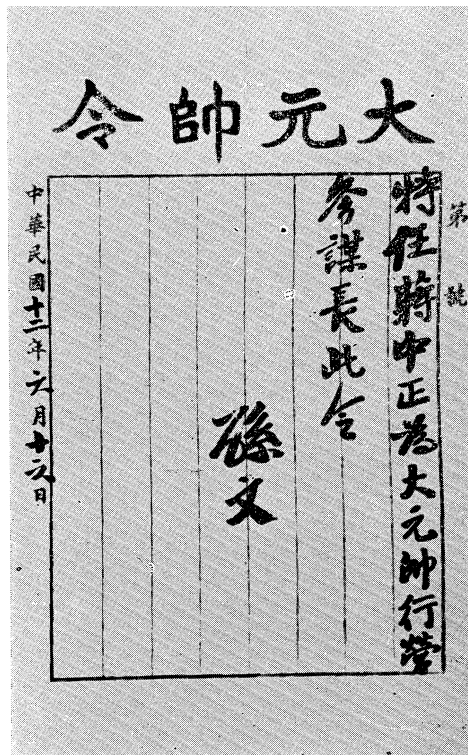 大元帥令
第 號
特任蔣中正為大元帥行營
參謀長此令
孫文
中華民國十二年六月十六日